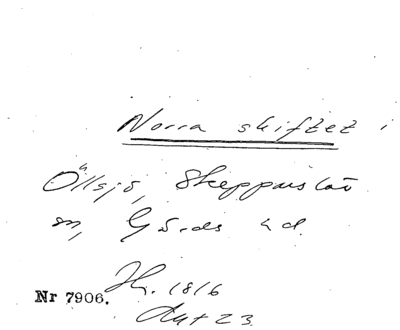 Norra skiftet i
Öllsjö, Skepparslöv
sn, Gärds hd.
Nr 7906.
1816